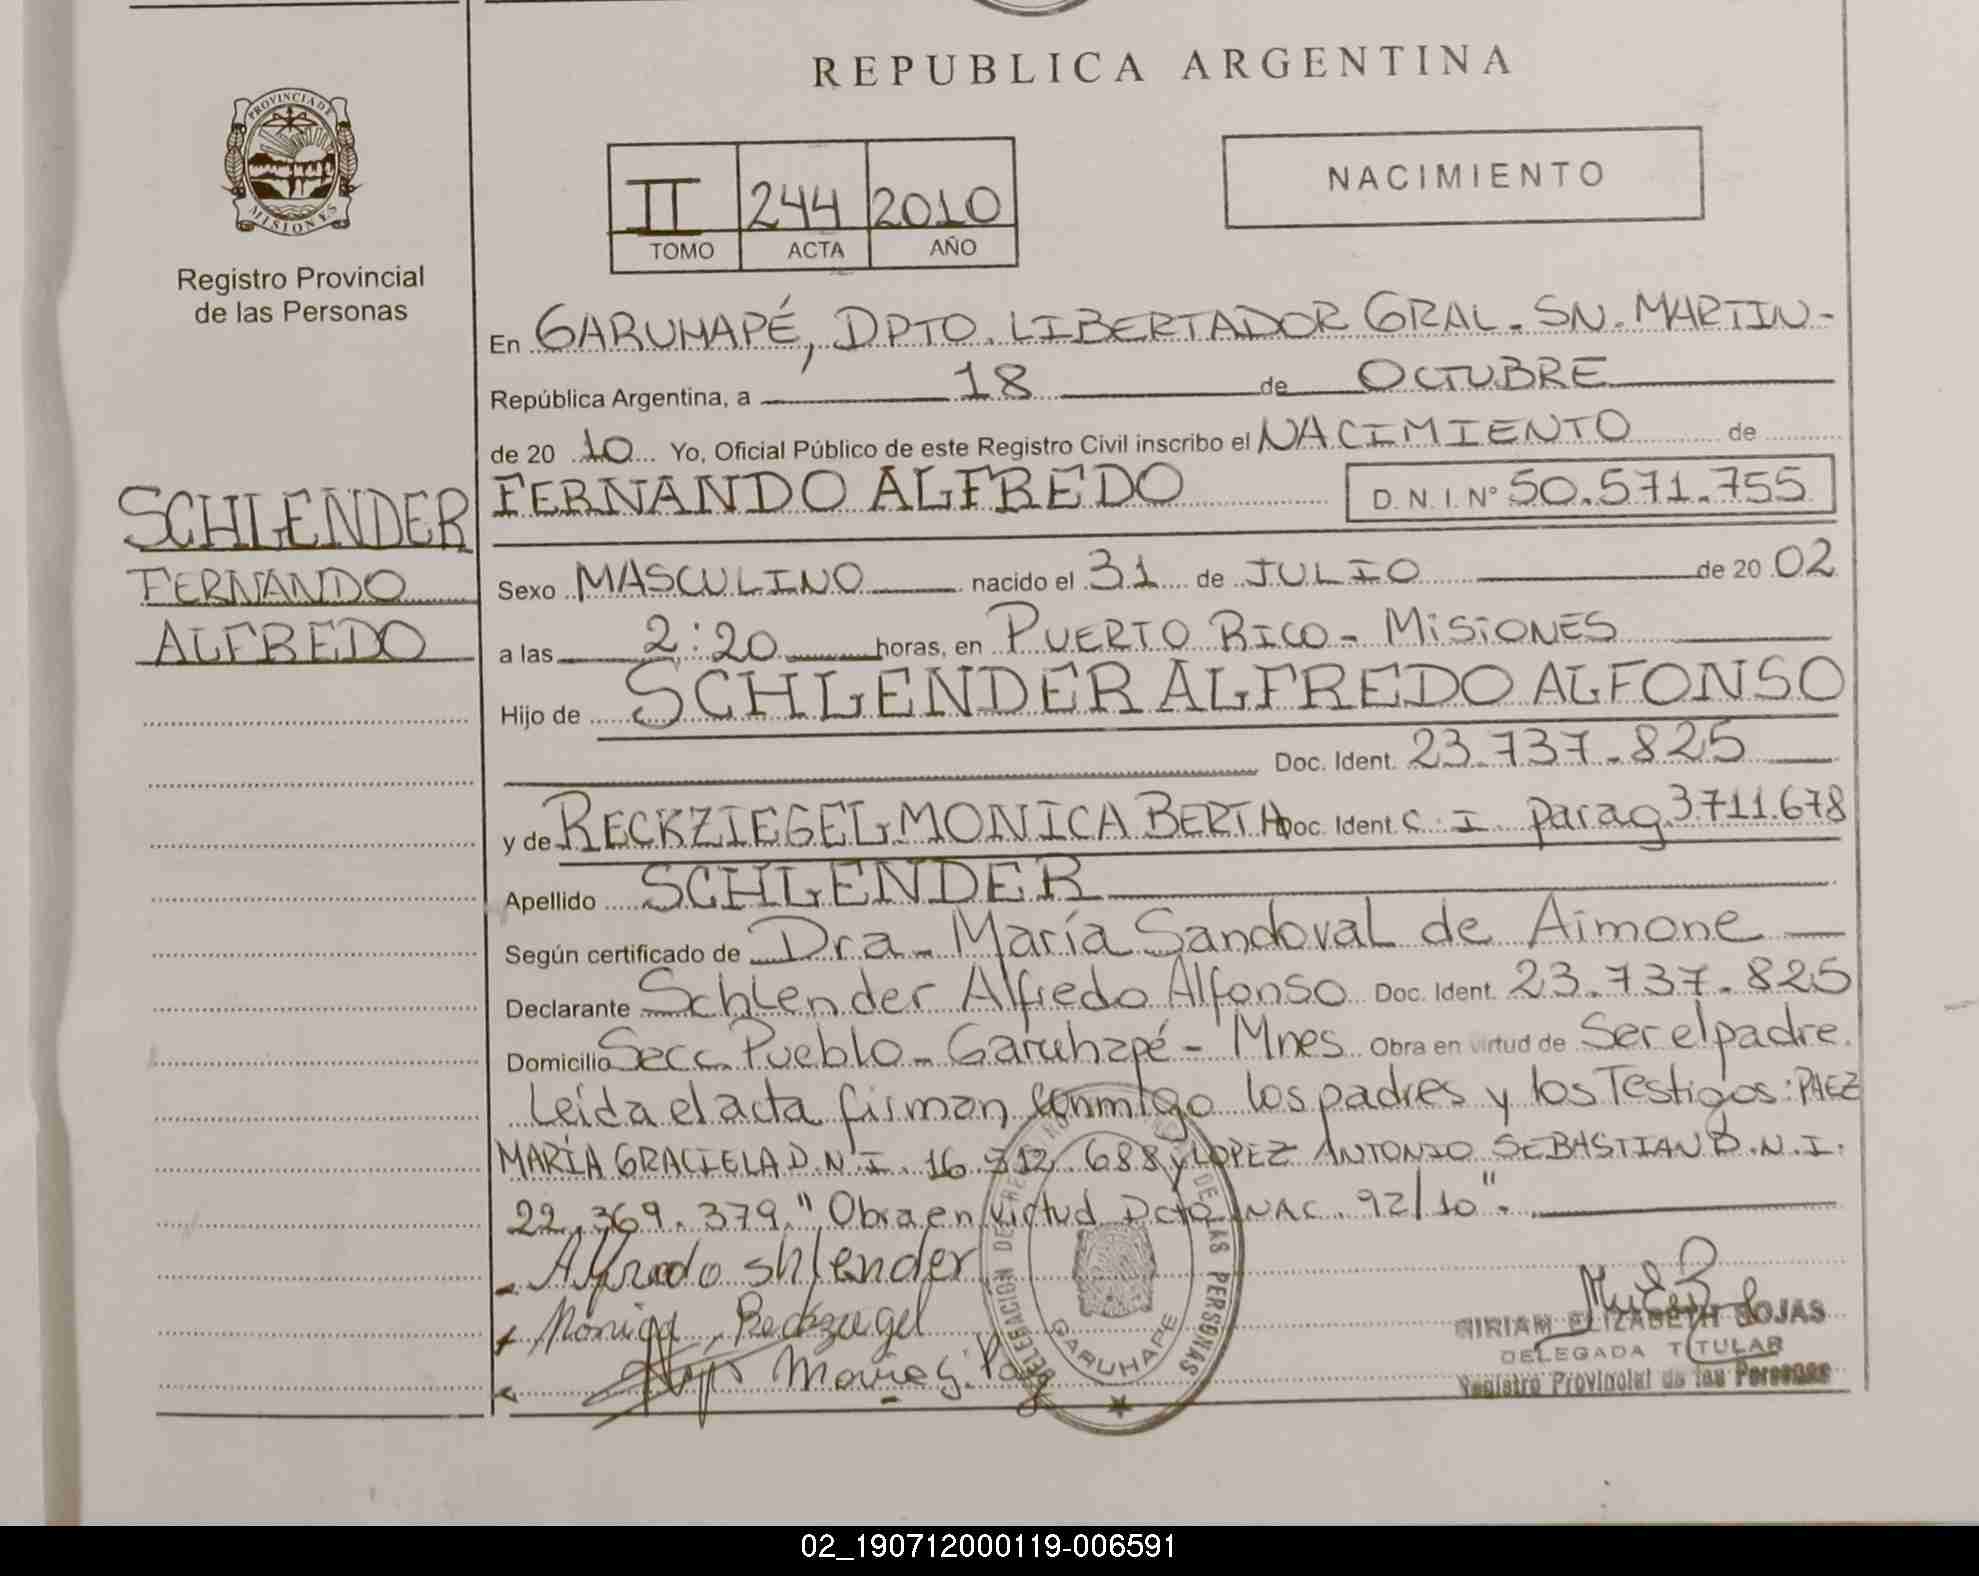 REPUBLICA ARGENTINA
PROVINCIA DE
MISIONES
Registro Provincial
de las Personas
II 244 2010
TOMO ACTA AÑO
NACIMIENTO
En GARUHAPÉ, DPTO. LIBERTADOR GRAL. SN. MARTIN-
República Argentina, a 18 de OCTUBRE
de 20 10 Yo, Oficial Público de este Registro Civil inscribo el NACIMIENTO de
SCHLENDER
FERNANDO
ALFREDO
FERNANDO ALFREDO D. N. I. N° 50.571.755
Sexo MASCULINO nacido el 31 de JULIO de 20 02
a las 2:20 horas, en PUERTO RICO - MISIONES
Hijo de SCHLENDER ALFREDO ALFONSO
Doc. Ident. 23.737.825
y de RECKZIEGEL MONICA BERTHA Doc. Ident. C. I. Parag. 3711.678
Apellido SCHLENDER
Según certificado de Dra. María Sandoval de Aimone
Declarante Schlender Alfredo Alfonso Doc. Ident. 23.737.825
Domicilio Secc. Pueblo - Garuhapé - Mnes Obra en virtud de Ser el padre.
Leída el acta firman conmigo los padres y los Testigos: PAEZ
MARÍA GRACIELA D.N.I. 16.312.688 y LOPEZ ANTONIO SEBASTIAN D.N.I.
22.369.379. "Obra en virtud Dcto NAC. 92/10".
Alfredo Shlender
Moniga Reckziegel
DELEGACION DE REGISTRO DE LAS PERSONAS
GARUHAPE
MIRIAM ELIZABETH ROJAS
DELEGADA TITULAR
Registro Provincial de las Personas
02_190712000119-006591